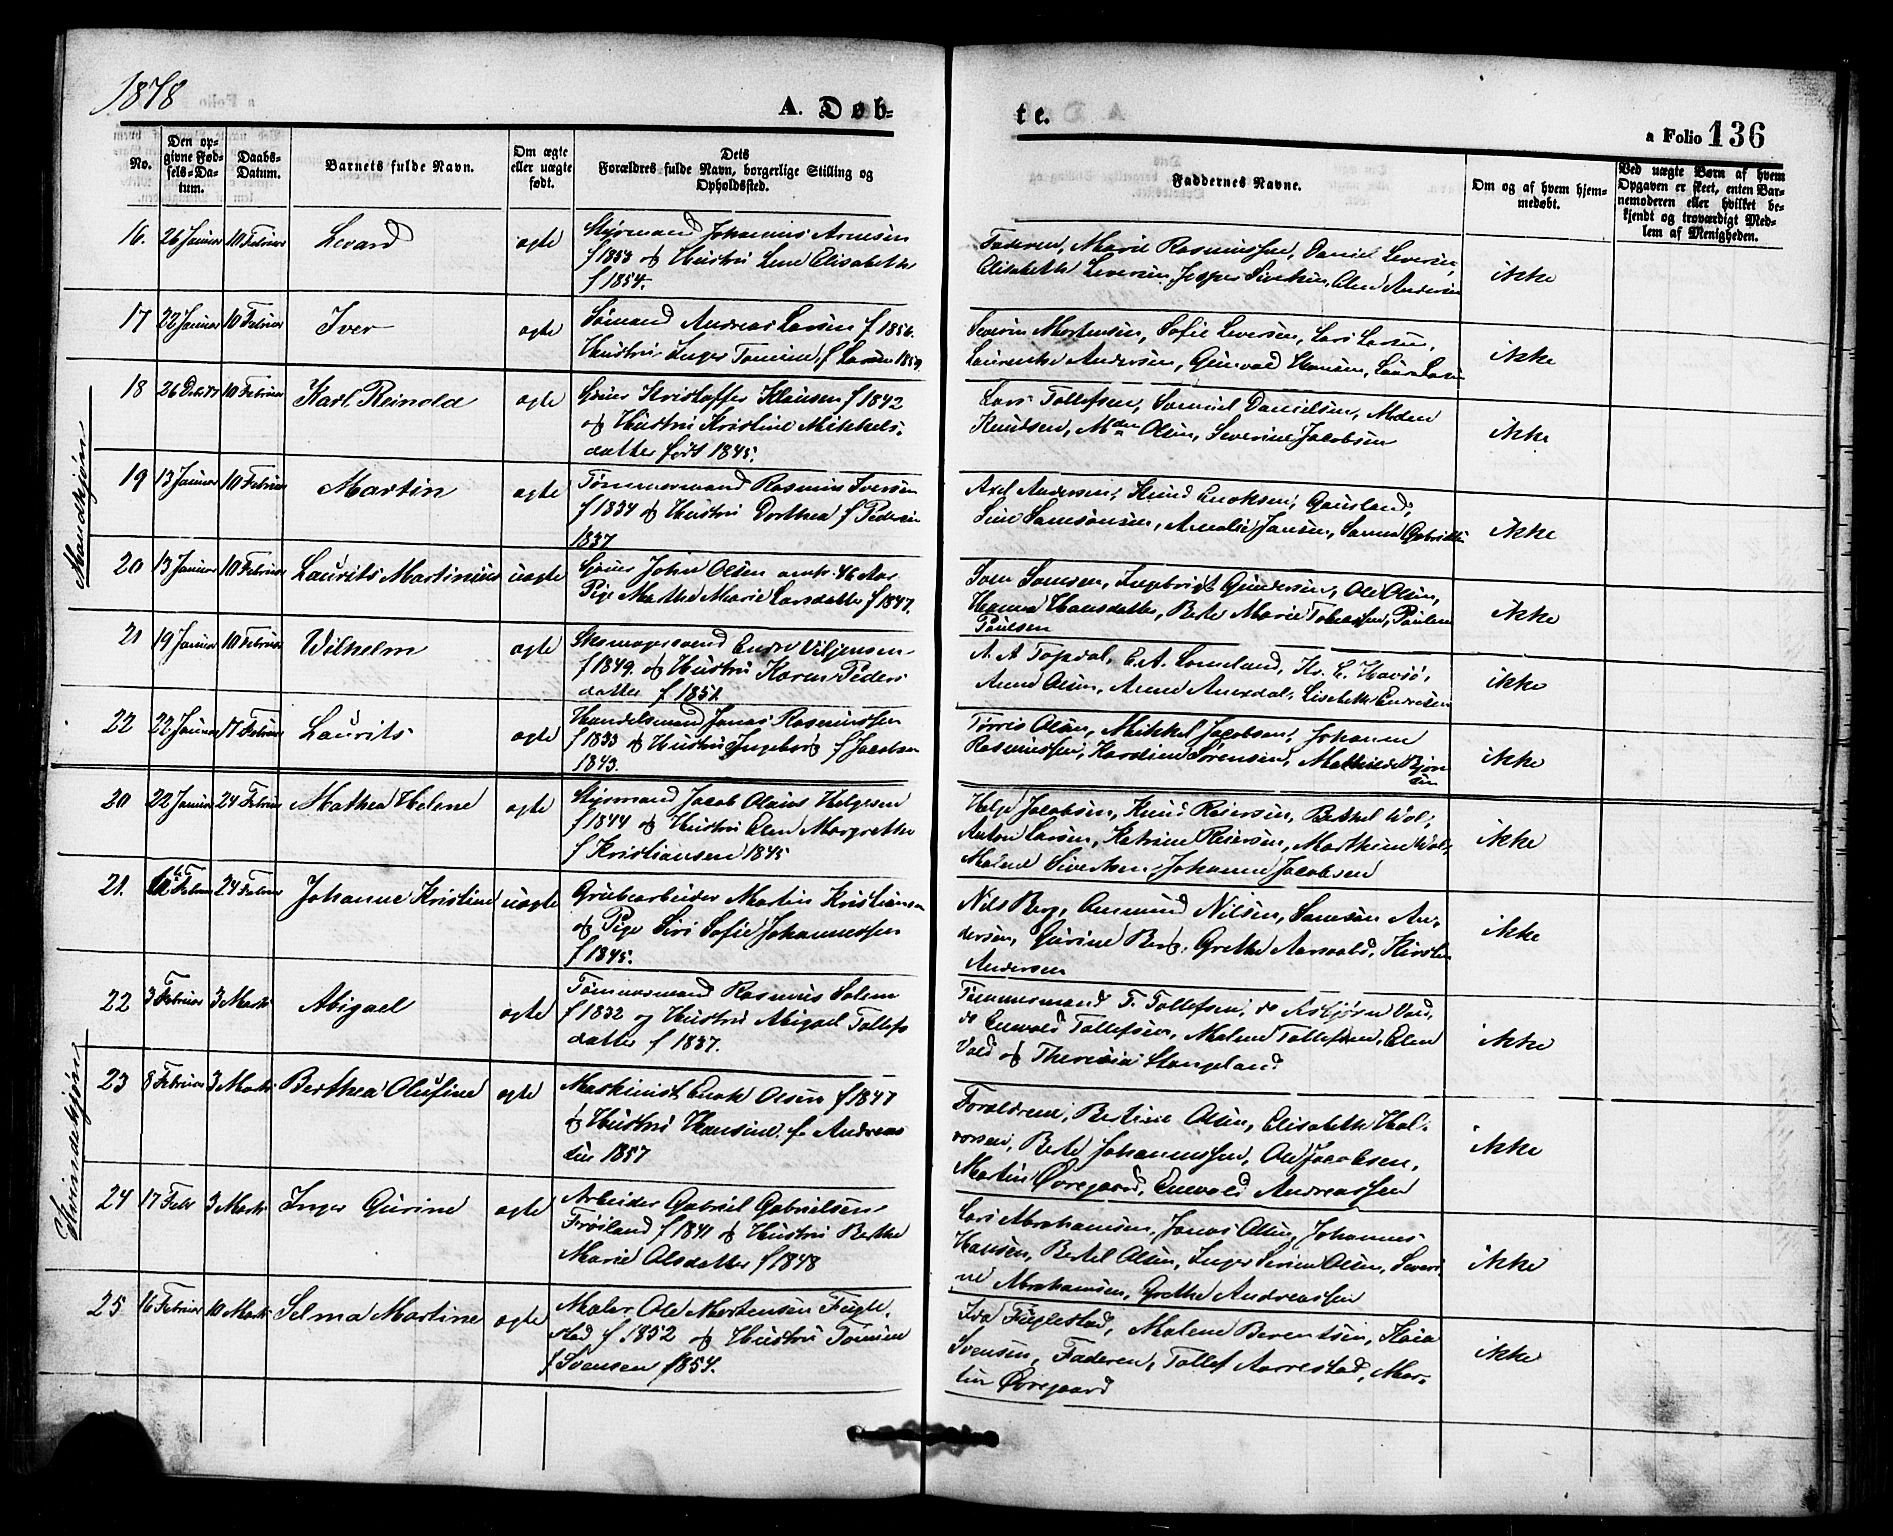 1878
A. Døb-
te.
a Folio 136
No.
Den op-
givne Fød-
sels-Da-
tum.
Daabs-
Datum.
Barnets fulde Navn.
Om ægte
eller uægte
født.
Dets
Forældres fulde Navn, borgerlige Stilling og
Opholdssted.
Faddernes Navne.
Om og af hvem hjem-
medøbt.
Ved uægte Børn af hvem
Opgaven er skeet, enten Bar-
nemoderen eller hvilket be-
kjendt og troværdigt Med-
lem af Menigheden.
Mandkjøn
16. 26 Januar 10 Februar Levard ægte
Styrmand Johannes Arnesen
f 1853 og Hustru Lene Elisabeth
f 1854.
Faderen, Marie Rasmussen, Daniel Leversen,
Elisabeth Leversen, Jesper Sivertsen, Andersen
ikke
17 22 Januar 10 Februar Iver ægte
Sømand Andreas Larsen f 1856.
Hustru Inger Tomine f Larsen
Severin Mortensen, Sofie Leversen, Lars Larsen,
Laurentse Andersen, Gunvald Hansen, Laura
ikke
18 26 10 Februar Karl Reinold ægte
Gjøver Kristoffer Klausen f 1842
og Hustru Kristine Mikkels-
datter født 1845.
Lars Tollefsen, Samuel Danielsen, Maden
Knudsen, Mden Olsen, Severine Jacobsen
ikke
19 13 Januar 10 Februar Martin ægte
Tømmermand Rasmus Iversen
f 1834 og Hustru Dorthea f Pedersen
1837
Axel Andersen, Knud Enoksen, Gausland,
Sine Samsonsen, Amalie Jansen, Sanna
ikke
20 13 Januar 10 Februar Laurits Martinius uægte
John Olsen omtr. 46 Aar
Pige Marthe Marie Larsdatter f 1847.
Sven Svensen, Ingebrigt Gundersen, Ole Olsen,
Hanna Hansdatter, Berte Marie Tobiassen,
Paulsen
ikke
21 19 Januar 10 Februar Wilhelm ægte
Endre Viljensen
f 1849 og Hustru Karen Peders
datter f 1851.
A. A Topdal, E. A. Lomeland, Kr. E. Havsø,
Anne Olsen, Anne Anexdal, Lisebeth Endresen
ikke
22 22 Januar 17 Februar Laurits ægte
Handelsmand Jonas Rasmussen
f 1833 og Hustru Ingeborg f Jacobsen
1843.
Tørres Olsen, Mikkel Jacobsen, Johanne
Rasmussen, Kardine Sørensen, Mathilde Bjørn
sen
ikke
Kvindekjøn
20 22 Januar 24 Februar Mathea Helene ægte
Styrmand Jacob Olaus Helgesen
f 1844 og Hustru Elen Margrethe
f Kristiansen 1845
Helge Jacobsen, Knud Reiersen, Bertel Wol,
Anton Larsen, Katrine Reiersen, Marthine Wol,
Malene Sivertsen, Johanne Jacobsen
ikke
21. 24 Februar Johanne Kristine uægte
Grubearbeider Martin Kristiansen
og Pige Siri Sofie Johannessen
f 1845.
Nils Berg, Ommund Nilsen, Samson An-
dersen, Gurine Berg, Grethe Aarsvold, Kirsten
Andersen
ikke
22 3 Februar 3 Marts Abigael ægte
Tømmermand Rasmus Salem
f 1832 og Hustru Abigael Tollefs
datter f 1837.
Tømmermand T. Tollefsen, do Asbjørn Vold,
do Enevold Tollefsen, Malene Tollefsen, Elen
Vold og Theresia Stangeland
ikke
23 8 Februar 3 Marts Berthea Olufine ægte
Maskinist Enok Olsen f 1847
og Hustru Hansine f. Andreas
sen 1857
Forældrene, Bertine Olsen, Elisabeth Hal-
vorsen, Berte Johannessen, Ole Jacobsen,
Martin Øvregaard, Enevold Andreassen
ikke
24 17 Febr 3 Marts Inger Gurine ægte
Arbeider Gabriel Gabrielsen
Frøiland f 1841 og Hustru Berthe
Marie Olsdatter f 1848
Lars Abrahamsen, Jonas Olsen, Johannes
Hansen, Bertel Olsen, Inger Serine Olsen, Severi
ne Abrahamsen, Grethe Andreassen
ikke
25 16 Februar 10 Marts Selma Martine ægte
Maler Ole Mortensen Fugle-
stad f 1852 og Hustru Tomine
f Svensen 1854.
Ida Fuglestad, Malene Berentsen, Kaia
Svensen, Faderen, Tollef Aarrestad, Mar-
tin Øvregaard
ikke